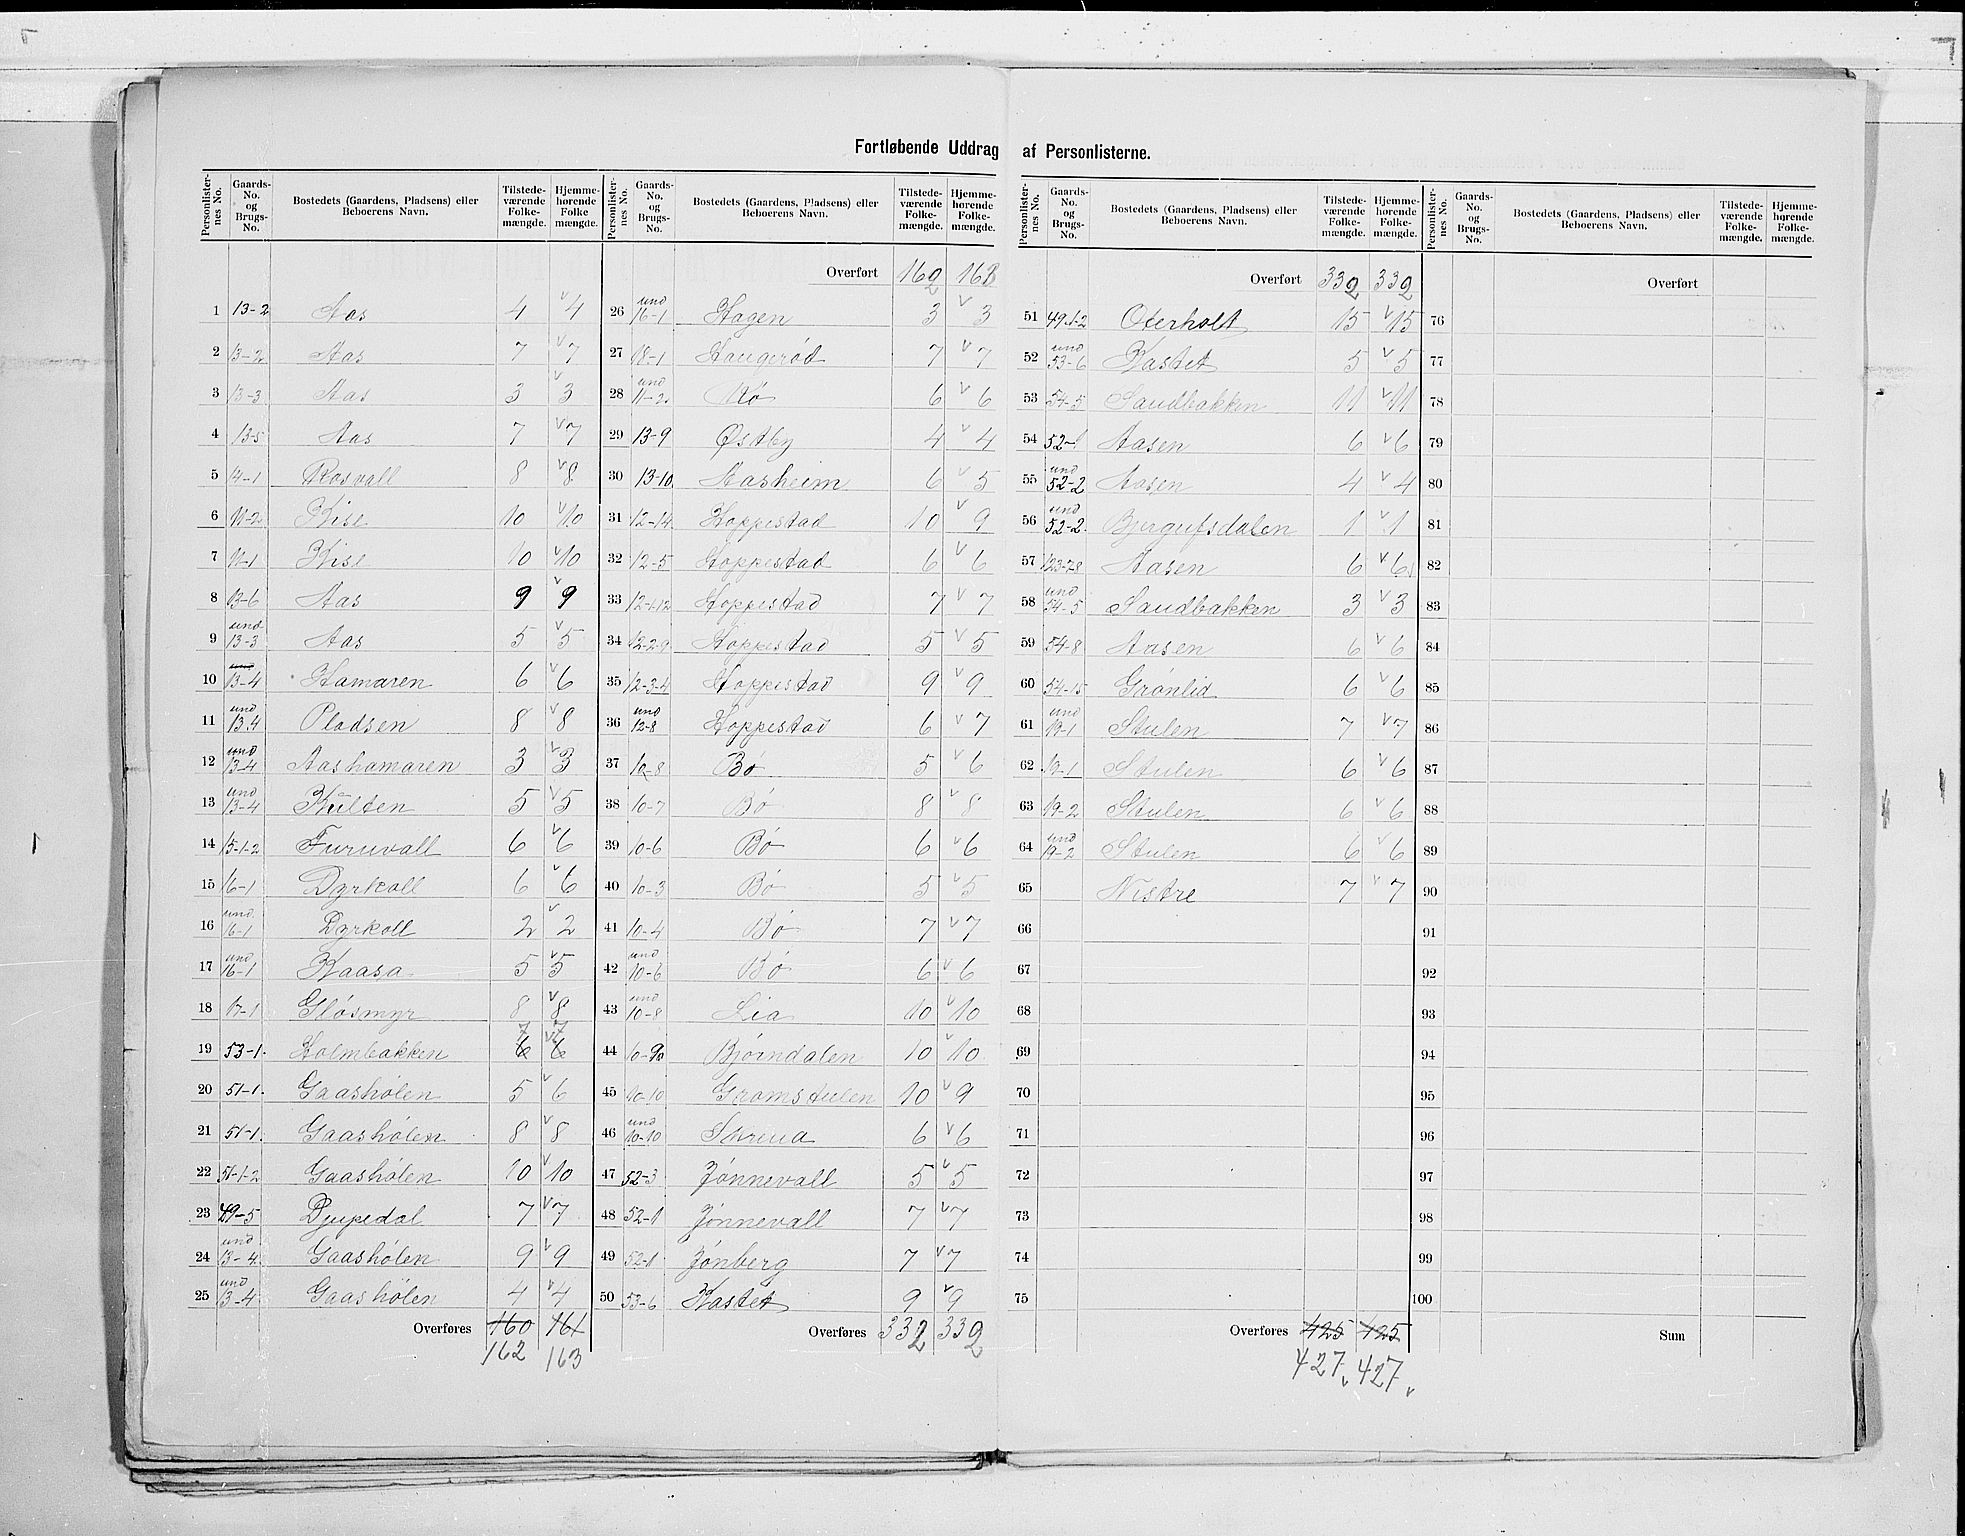 Fortløbende Uddrag af Personlisterne.
Personlister-nes No. Gaards-No. og Brugs-No. Bostedets (Gaardens, Pladsens) eller Beboerens Navn. Tilstede-værende Folke-mængde. Hjemme-hørende Folke mængde.
1 13-2 Aas 4 v 4
2 13-2 Aas 7 v 7
3 13-3 Aas 3 v 3
4 13-5 Aas 7 v 7
5 14-1 Rosvall 8 v 8
6 11-2 Kise 10 v 10
7 11-1 Kise 10 v 10
8 13-6 Aas 9 v 9
9 und 13-3 Aas 5 v 5
10 13-4 Hamaren 6 v 6
11 und 13.4 Pladsen 8 v 8
12 und 13-4 Aashamaren 3 v 3
13 und 13-4 Kulten 5 v 5
14 15-1-2 Furuvall 6 v 6
15 16-1 Dyrkoll 6 v 6
16 und. 16-1 Dyrkoll 2 v 2
17 und 16-1 Kaasa 5 v 5
18 17-1 Gløsmyr 8 v 8
19 53-1. Holmbakken 6 7 v 6 7
20 51-1. Gaashølen 5 v 6
21 51-1. Gaashølen 8 v 8
22 51-1-2 Gaashølen 10 v 10
23 49-5 Djupedal 7 v 7
24 und 13-4 Gaashølen 9 v 9
25 und 13-4 Gaashølen 4 v 4
Overføres 160 161
162 163
Personlister-nes No. Gaards-No. og Brugs-No. Bostedets (Gaardens, Pladsens) eller Beboerens Navn. Tilstede-værende Folke-mængde. Hjemme-hørende Folke-mængde.
Overført 162 163
26 und 16-1 Hagen 3 v 3
27 18-1 Haugerød 7 v 7
28 und 11-2. Bø 6 v 6
29 13-9 Østby 4 v 4
30 13-10 Aasheim 6 v 5
31 12-14 Hoppestad 10 v 9
32 12-5 Hoppestad 6 v 6
33 12-1-12 Hoppestad 7 v 7
34 12-2-9 Hoppestad 5 v 5
35 12-3-4 Hoppestad 9 v 9
36 und 12-8 Hoppestad 6 v 7
37 10-8 Bø 5 v 6
38 10-7 Bø 8 v 8
39 10-6 Bø 6 v 6
40 10-3 Bø 5 v 5
41 10-4 Bø 7 v 7
42 und 10-6 Bø 6 v 6
43 und 10-8 Lia 10 v 10
44 10-90 Bjørndalen 10 v 10
45 10-10 Gromstulen 10 v 9
46 und 10-10 6 v 6
47 52-3 Jønnevall 5 v 5
48 52-1 Jønnevall 7 v 7
49 52-1 Jønberg 7 v 7
50 53-6 Kastet 9 v 9
Overføres 332 332
Personlister-nes No. Gaards-No. og Brugs-No. Bostedets (Gaardens, Pladsens) eller Beboerens Navn. Tilstede-værende Folke-mængde. Hjemme-hørende Folke-mængde.
Overført 332 332
51 49-1-2 Oterholt 15 v 15
52 und 53-6 Kastet 5 v 5
53 54-5 Sandbakken 11 v 11
54 52-1 Aasen 6 v 6
55 und 52-2 Aasen 4 v 4
56 und 52-2. Bjergufsdalen 1 v 1
57 123-78 Aasen 6 v 6
58 und 54-5 Sandbakken 3 v 3
59 54-8 Aasen 6 v 6
60 54-15 Grønlid 6 v 6
61 und 19-1 Stulen 7 v 7
62 19-1 Stulen 6 v 6
63 19-2 Stulen 6 v 6
64 und 19-2 Stulen 6 v 6
65 Nistre 7 v 7
66
67
68
69
70
71
72
73
74
75
Overføres 425 425
427 v 427 v
Personlister-nes No. Gaards-No. og Brugs-No. Bostedets (Gaardens, Pladsens) eller Beboerens Navn. Tilstede-værende Folke-mængde. Hjemme-hørende Folke-mængde.
Overført
76
77
78
79
80
81
82
83
84
85
86
87
88
89
90
91
92
93
94
95
96
97
98
99
100
Sum